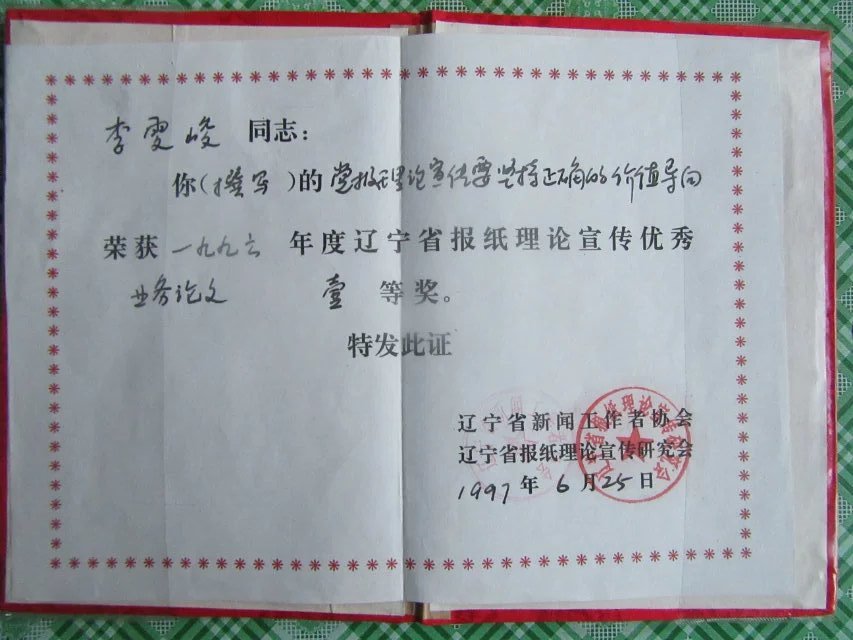 李雯峻 同志：
你（撰写）的党报理论宣传要坚持正确的价值导向
荣获一九九六年度辽宁省报纸理论宣传优秀
业务论文 壹 等奖。
特发此证
辽宁省新闻工作者协会
辽宁省报纸理论宣传研究会
1997年6月25日